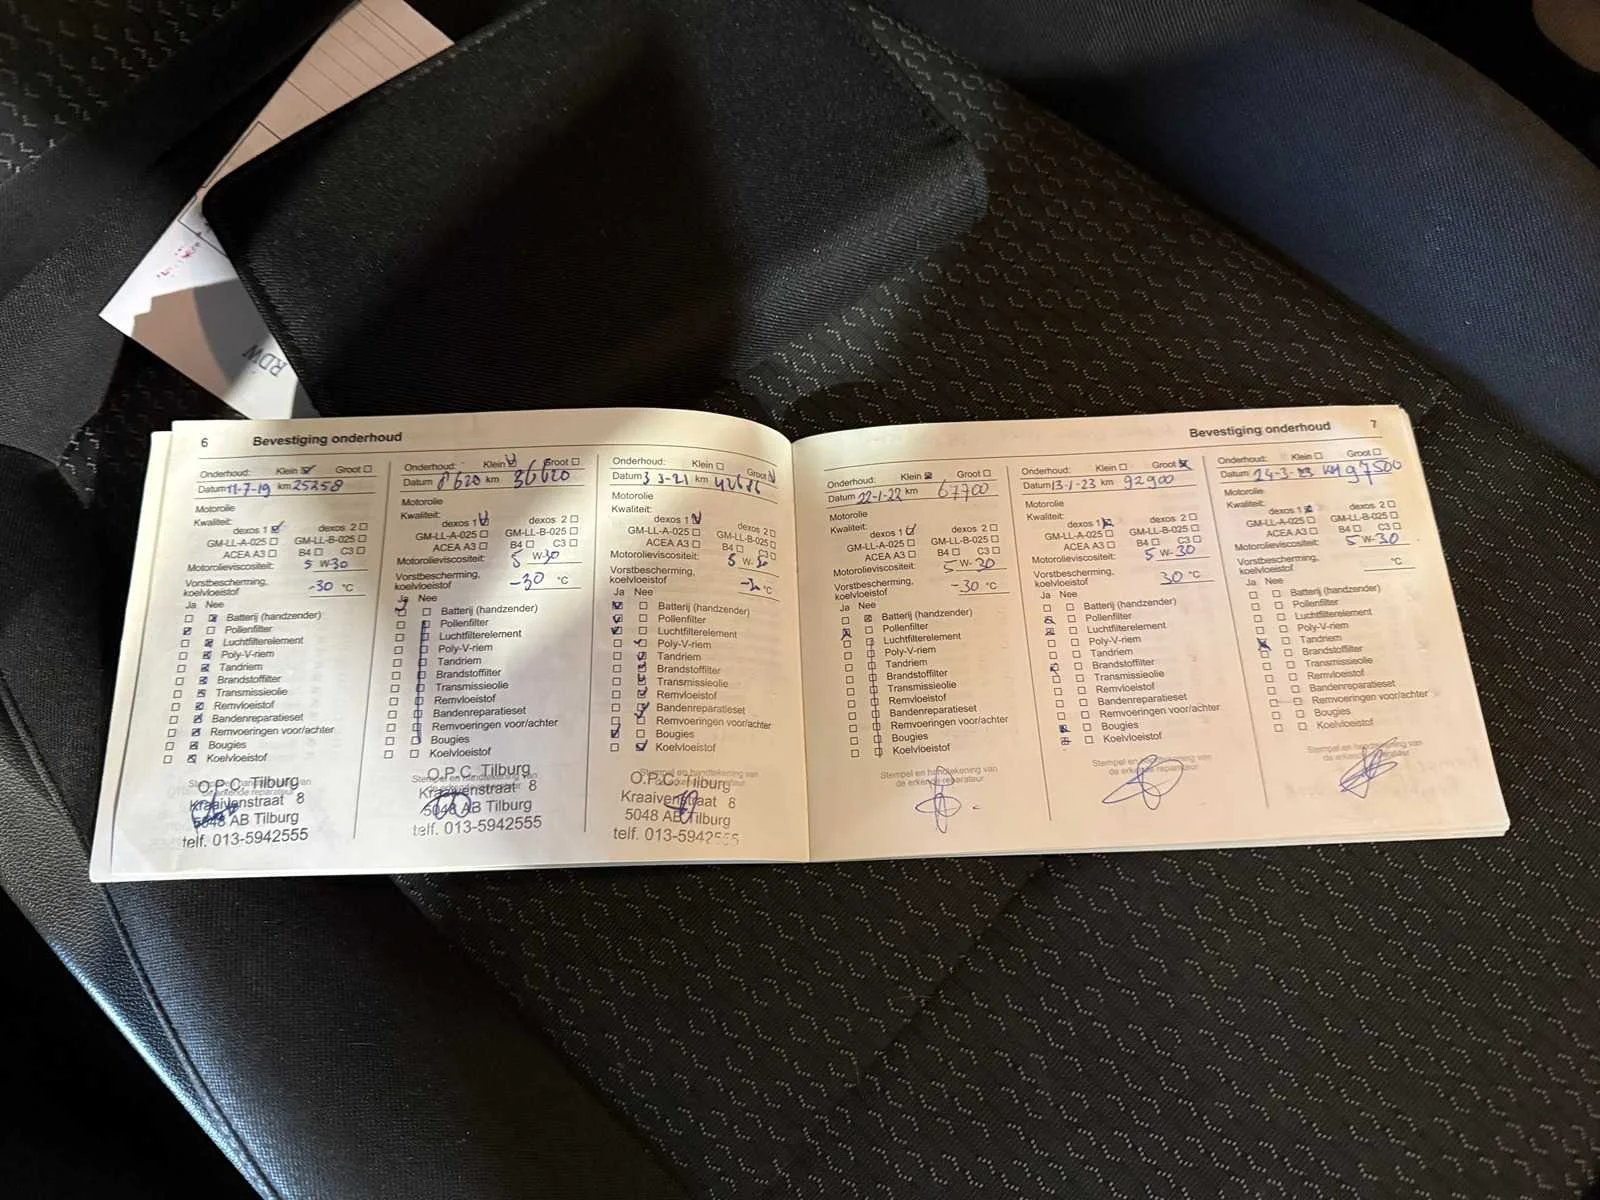 RDW
6 Bevestiging onderhoud
Onderhoud: Klein Groot
Datum 11-7-19 km 25258
Motorolie
Kwaliteit:
dexos 1 dexos 2
GM-LL-A-025 GM-LL-B-025
ACEA A3 B4 C3
Motorolieviscositeit: 5 W-30
Vorstbescherming,
koelvloeistof -30 °C
Ja Nee
Batterij (handzender)
Pollenfilter
Luchtfilterelement
Poly-V-riem
Tandriem
Brandstoffilter
Transmissieolie
Remvloeistof
Bandenreparatieset
Remvoeringen voor/achter
Bougies
Koelvloeistof
O.P.C. Tilburg
Kraaivenstraat 8
5048 AB Tilburg
telf. 013-5942555
Onderhoud: Klein Groot
Datum 8 620 km 36620
Motorolie
Kwaliteit:
dexos 1 dexos 2
GM-LL-A-025 GM-LL-B-025
ACEA A3 B4 C3
Motorolieviscositeit: 5 W-30
Vorstbescherming,
koelvloeistof -30 °C
Ja Nee
Batterij (handzender)
Pollenfilter
Luchtfilterelement
Poly-V-riem
Tandriem
Brandstoffilter
Transmissieolie
Remvloeistof
Bandenreparatieset
Remvoeringen voor/achter
Bougies
Koelvloeistof
Stempel en handtekening van
O.P.C. Tilburg
Kraaivenstraat 8
5048 AB Tilburg
telf. 013-5942555
Onderhoud: Klein Groot
Datum 3 3-21 km
Motorolie
Kwaliteit:
dexos 1 dexos 2
GM-LL-A-025 GM-LL-B-025
ACEA A3 B4 C3
Motorolieviscositeit: 5 W-30
Vorstbescherming,
koelvloeistof °C
Ja Nee
Batterij (handzender)
Pollenfilter
Luchtfilterelement
Poly-V-riem
Tandriem
Brandstoffilter
Transmissieolie
Remvloeistof
Bandenreparatieset
Remvoeringen voor/achter
Bougies
Koelvloeistof
O.P.C. Tilburg
Kraaivenstraat 8
5048 AB Tilburg
telf. 013-5942555
Bevestiging onderhoud 7
Onderhoud: Klein Groot
Datum 22-1-22 km 67700
Motorolie
Kwaliteit:
dexos 1 dexos 2
GM-LL-A-025 GM-LL-B-025
ACEA A3 B4 C3
Motorolieviscositeit: 5 W-30
Vorstbescherming,
koelvloeistof -30 °C
Ja Nee
Batterij (handzender)
Pollenfilter
Luchtfilterelement
Poly-V-riem
Tandriem
Brandstoffilter
Transmissieolie
Remvloeistof
Bandenreparatieset
Remvoeringen voor/achter
Bougies
Koelvloeistof
Stempel en handtekening van
de erkende reparateur
Onderhoud: Klein Groot
Datum 13-1-23 km 92900
Motorolie
Kwaliteit:
dexos 1 dexos 2
GM-LL-A-025 GM-LL-B-025
ACEA A3 B4 C3
Motorolieviscositeit: 5 W-30
Vorstbescherming,
koelvloeistof 30 °C
Ja Nee
Batterij (handzender)
Pollenfilter
Luchtfilterelement
Poly-V-riem
Tandriem
Brandstoffilter
Transmissieolie
Remvloeistof
Bandenreparatieset
Remvoeringen voor/achter
Bougies
Koelvloeistof
Stempel en handtekening van
de erkende reparateur
Onderhoud: Klein Groot
Datum 24-3-23 KM 97500
Motorolie
Kwaliteit:
dexos 1 dexos 2
GM-LL-A-025 GM-LL-B-025
ACEA A3 B4 C3
Motorolieviscositeit: 5 W-30
Vorstbescherming,
koelvloeistof °C
Ja Nee
Batterij (handzender)
Pollenfilter
Luchtfilterelement
Tandriem
Brandstoffilter
Transmissieolie
Remvloeistof
Bandenreparatieset
Remvoeringen voor/achter
Bougies
Koelvloeistof
Stempel en handtekening van
de erkende reparateur